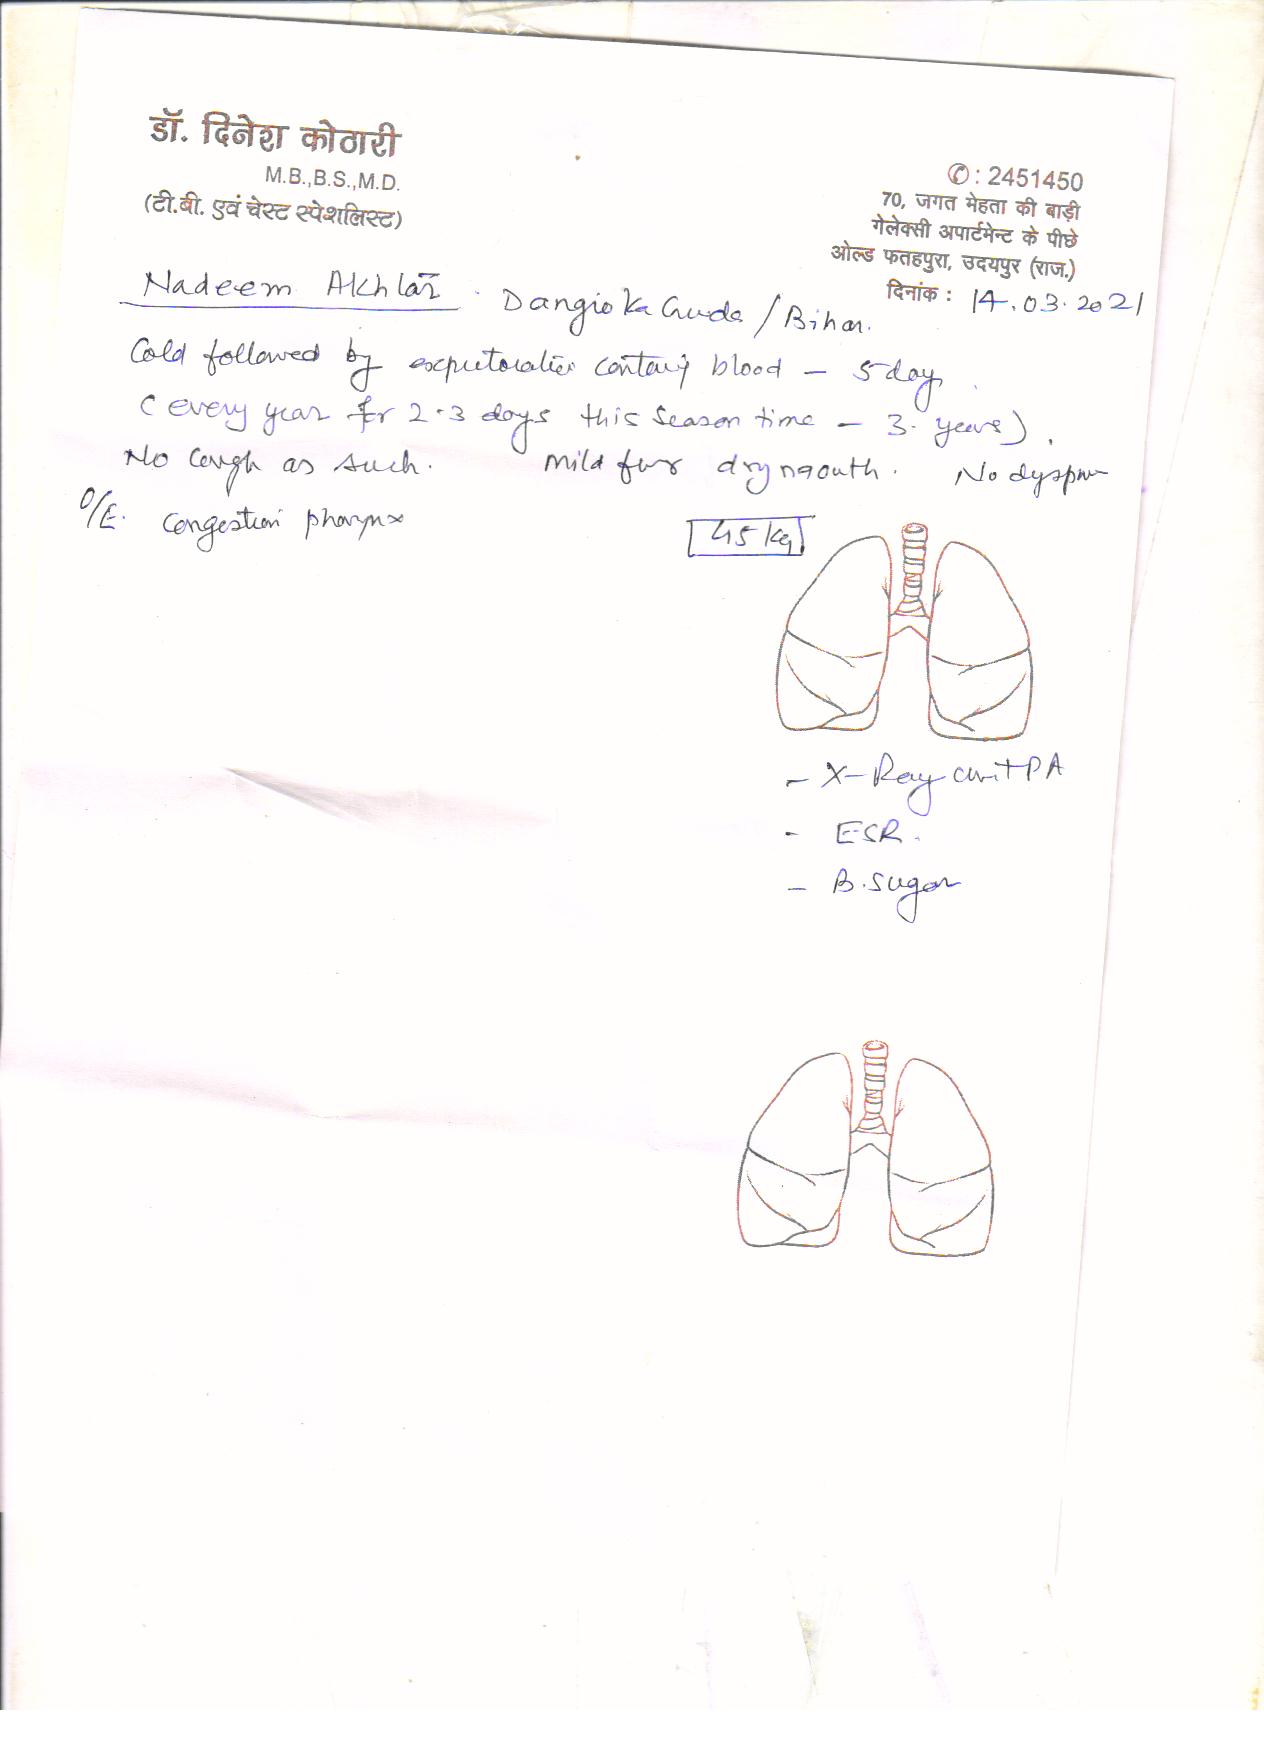 डॉ. दिनेश कोठारी
M.B.,B.S.,M.D.
(टी.बी. एवं चेस्ट स्पेशलिस्ट)
✆: 2451450
70, जगत मेहता की बाड़ी
गेलेक्सी अपार्टमेन्ट के पीछे
ओल्ड फतहपुरा, उदयपुर (राज.)
दिनांक : 14.03.2021
Nadeem
Dangio ka Guda / Bihar.
Cold followed by blood - 5 day
( every year for 2-3 days this season time - 3 years).
No Cough as such. mild dry mouth. No
O/E. Congestion pharynx
45 kg
- X-Ray PA
- ESR.
- B. Sugar